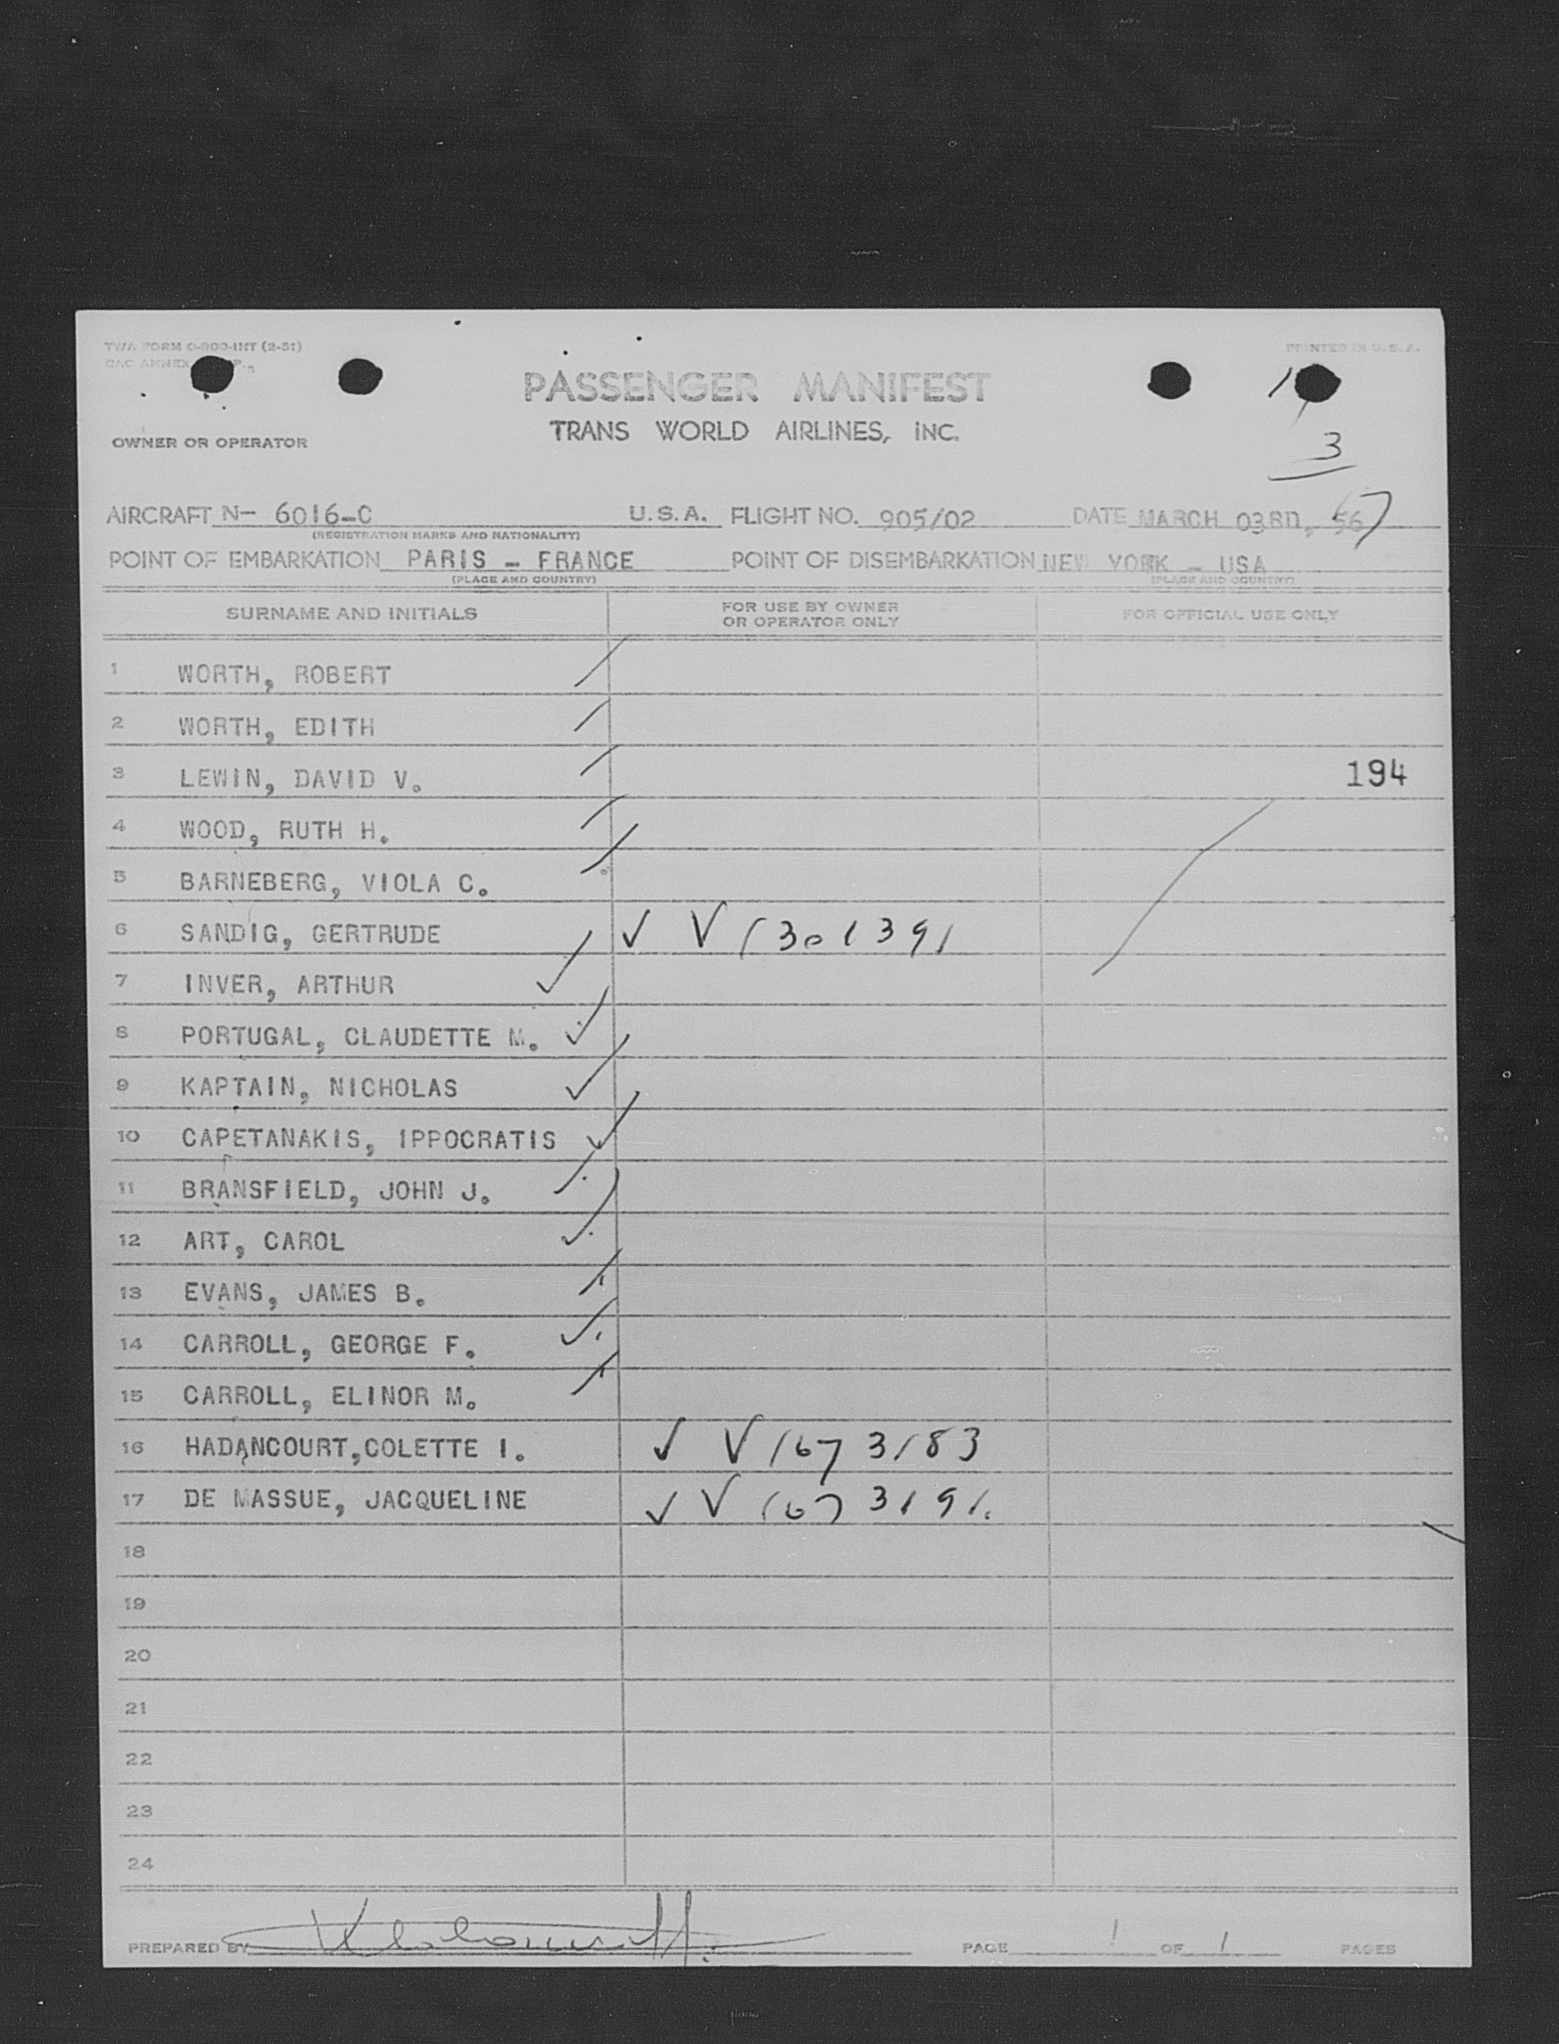 TWA FORM O-800-INT (2-51) PRINTED IN U.S.A.
CAC ANNEX
PASSENGER MANIFEST
TRANS WORLD AIRLINES, INC.
OWNER OR OPERATOR
3
AIRCRAFT N- 6016-C U.S.A. FLIGHT NO. 905/02 DATE MARCH 03RD, 567
(REGISTRATION MARKS AND NATIONALITY)
POINT OF EMBARKATION PARIS - FRANCE POINT OF DISEMBARKATION NEW YORK - USA
(PLACE AND COUNTRY) (PLACE AND COUNTRY)
SURNAME AND INITIALS FOR USE BY OWNER OR OPERATOR ONLY FOR OFFICIAL USE ONLY
1 WORTH, ROBERT
2 WORTH, EDITH
3 LEWIN, DAVID V. 194
4 WOOD, RUTH H.
5 BARNEBERG, VIOLA C.
6 SANDIG, GERTRUDE ✓ V 1301391
7 INVER, ARTHUR ✓
8 PORTUGAL, CLAUDETTE M. ✓
9 KAPTAIN, NICHOLAS ✓
10 CAPETANAKIS, IPPOCRATIS ✓
11 BRANSFIELD, JOHN J.
12 ART, CAROL ✓
13 EVANS, JAMES B.
14 CARROLL, GEORGE F. ✓
15 CARROLL, ELINOR M.
16 HADANCOURT,COLETTE I. ✓ V 1673183
17 DE MASSUE, JACQUELINE ✓ V 1673191.
18
19
20
21
22
23
24
PREPARED BY PAGE 1 OF 1 PAGES